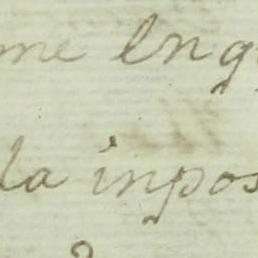 me eng
la inpos